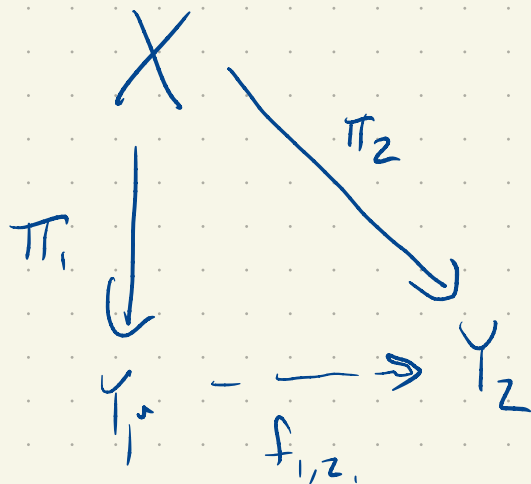 X
π₂
π₁
Y₁
Y₂
f₁,₂